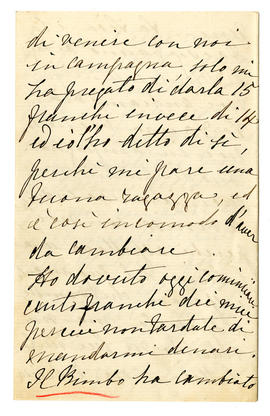 di venire con noi
in campagna solo mi
ha pregato di darla 15
franchi invece di 14
ed io l'ho detto di sì,
perchè mi pare una
buona ragazza, ed
è così incomodo d'aver
da cambiare.
Ho dovuto oggi cominciare
cento franchi dei miei
perciò non tardate di
mandarmi denari.
Il Bimbo ha cambiato